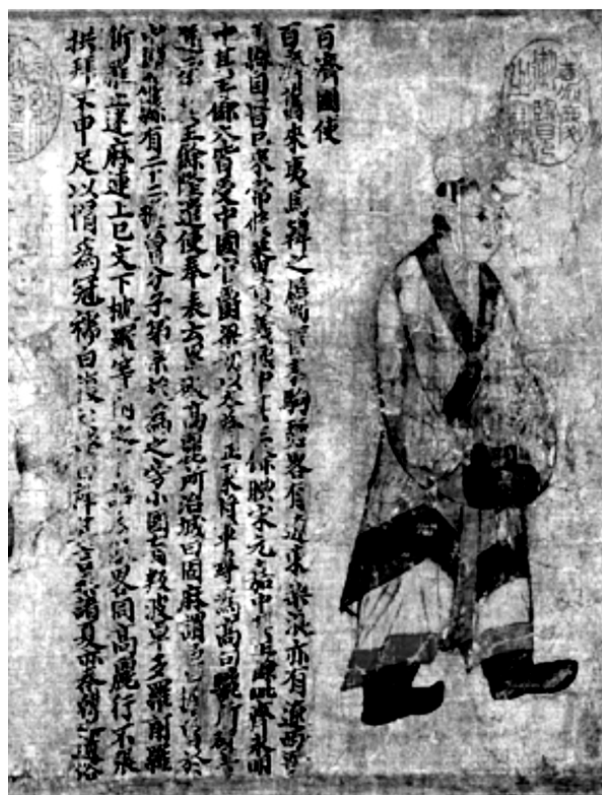 百濟國使
百濟舊來夷馬韓之屬末駒驪畧有遼東樂浪亦有遼西晉
縣自晉已來常修蕃貢義熙中其王餘腆宋元嘉中其王餘毗齊永明
中其王餘太皆受中國官爵梁初以太爲征東將軍尋爲高句驪所破普
通二年其王餘隆遣使奉表云累破高麗所治城曰固麻謂邑曰檐魯於
中國郡縣有二十二檐魯分子弟宗族爲之旁小國有叛波卓多羅前羅
斯羅止迷麻連上巳文下枕羅等附之言語衣服畧同高麗行不張
拱拜不申足以帽爲冠襦曰複衫袴曰褌其言參諸夏亦秦韓之遺俗